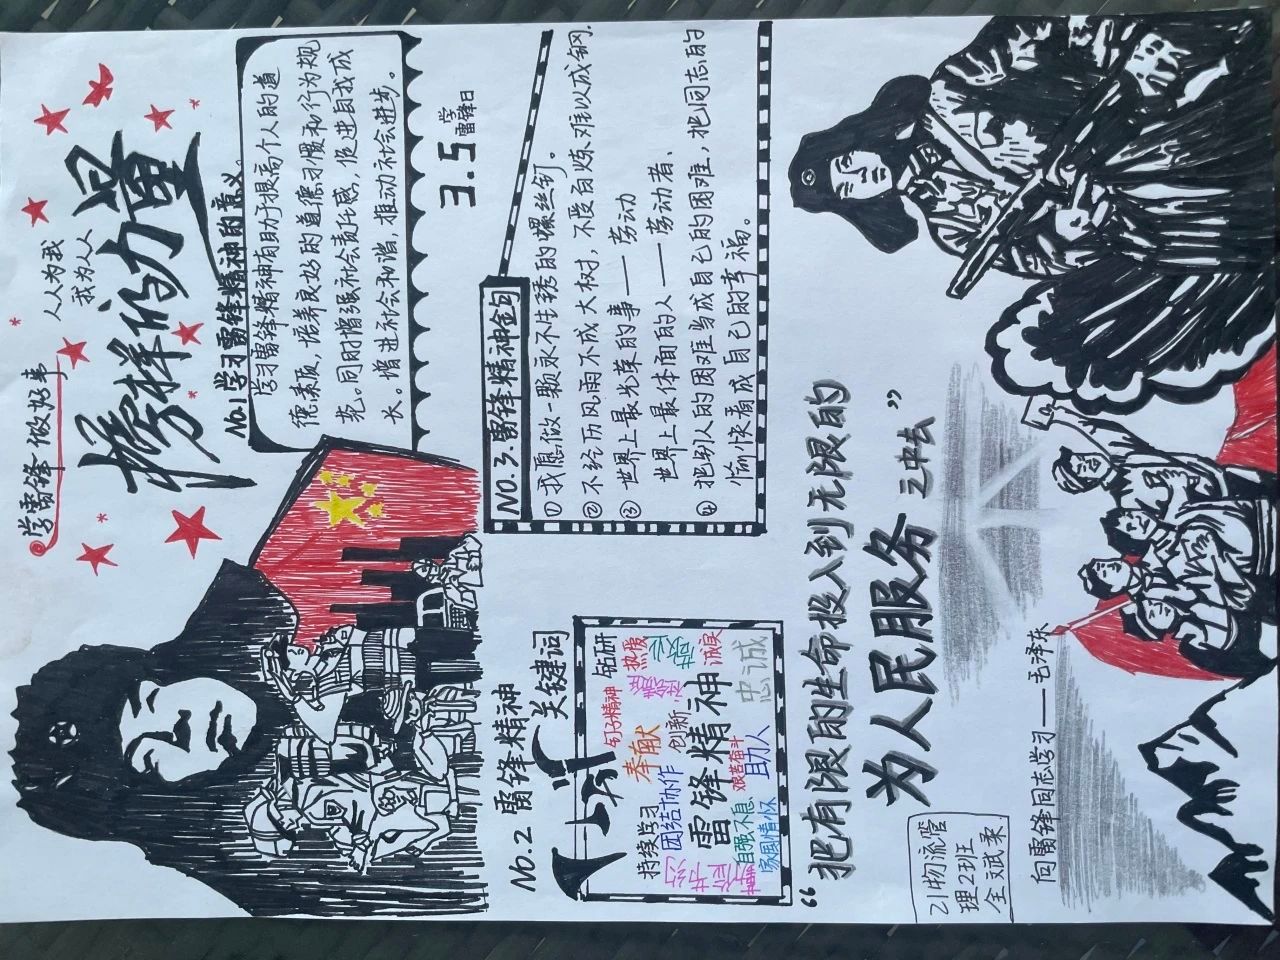 学雷锋做好事
人人为我
我为人人
榜样的力量
No.1 学习雷锋精神的意义
学习雷锋精神有助于提高个人的道
德素质，培养良好的道德习惯和行为规
范。同时增强社会责任感，促进自我成
长。增进社会和谐，推动社会进步。
3.5 学雷锋日
No.2 雷锋精神
关键词
钉子精神 钻研
持续学习 奉献 热爱
团结协作 创新
雷锋精神
艰苦奋斗
自强不息 助人 忠诚
家国情怀
NO.3.雷锋精神金句
①我愿做一颗永不生锈的螺丝钉。
②不经历风雨不成大树，不受百炼难以成钢.
③世界上最光荣的事——劳动
世界上最体面的人——劳动者、
④把别人的困难当成自己的困难，把同志的
愉快看成自己的幸福。
“把有限的生命投入到无限的
为人民服务 之中去”
21物流管
理2班
全斌柔
向雷锋同志学习——毛泽东